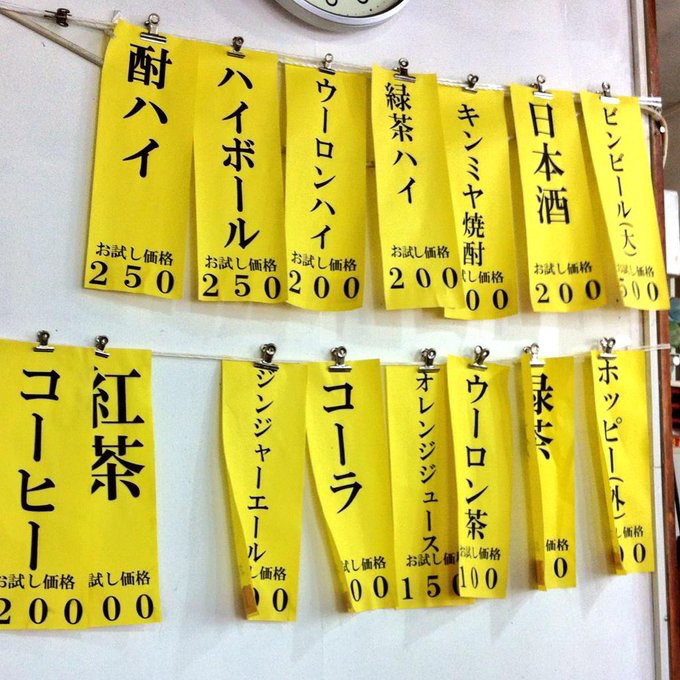 酎ハイ
お試し価格
250
ハイボール
お試し価格
250
ウーロンハイ
お試し価格
200
緑茶ハイ
お試し価格
200
キンミヤ焼酎
お試し価格
00
日本酒
お試し価格
200
ビンビール(大)
お試し価格
500
コーヒー
お試し価格
200
紅茶
試し価格
00
ジンジャーエール
価格
00
コーラ
試し価格
00
オレンジジュース
お試し価格
150
ウーロン茶
お試し価格
100
緑茶
価格
0
ホッピー(外)
価格
00